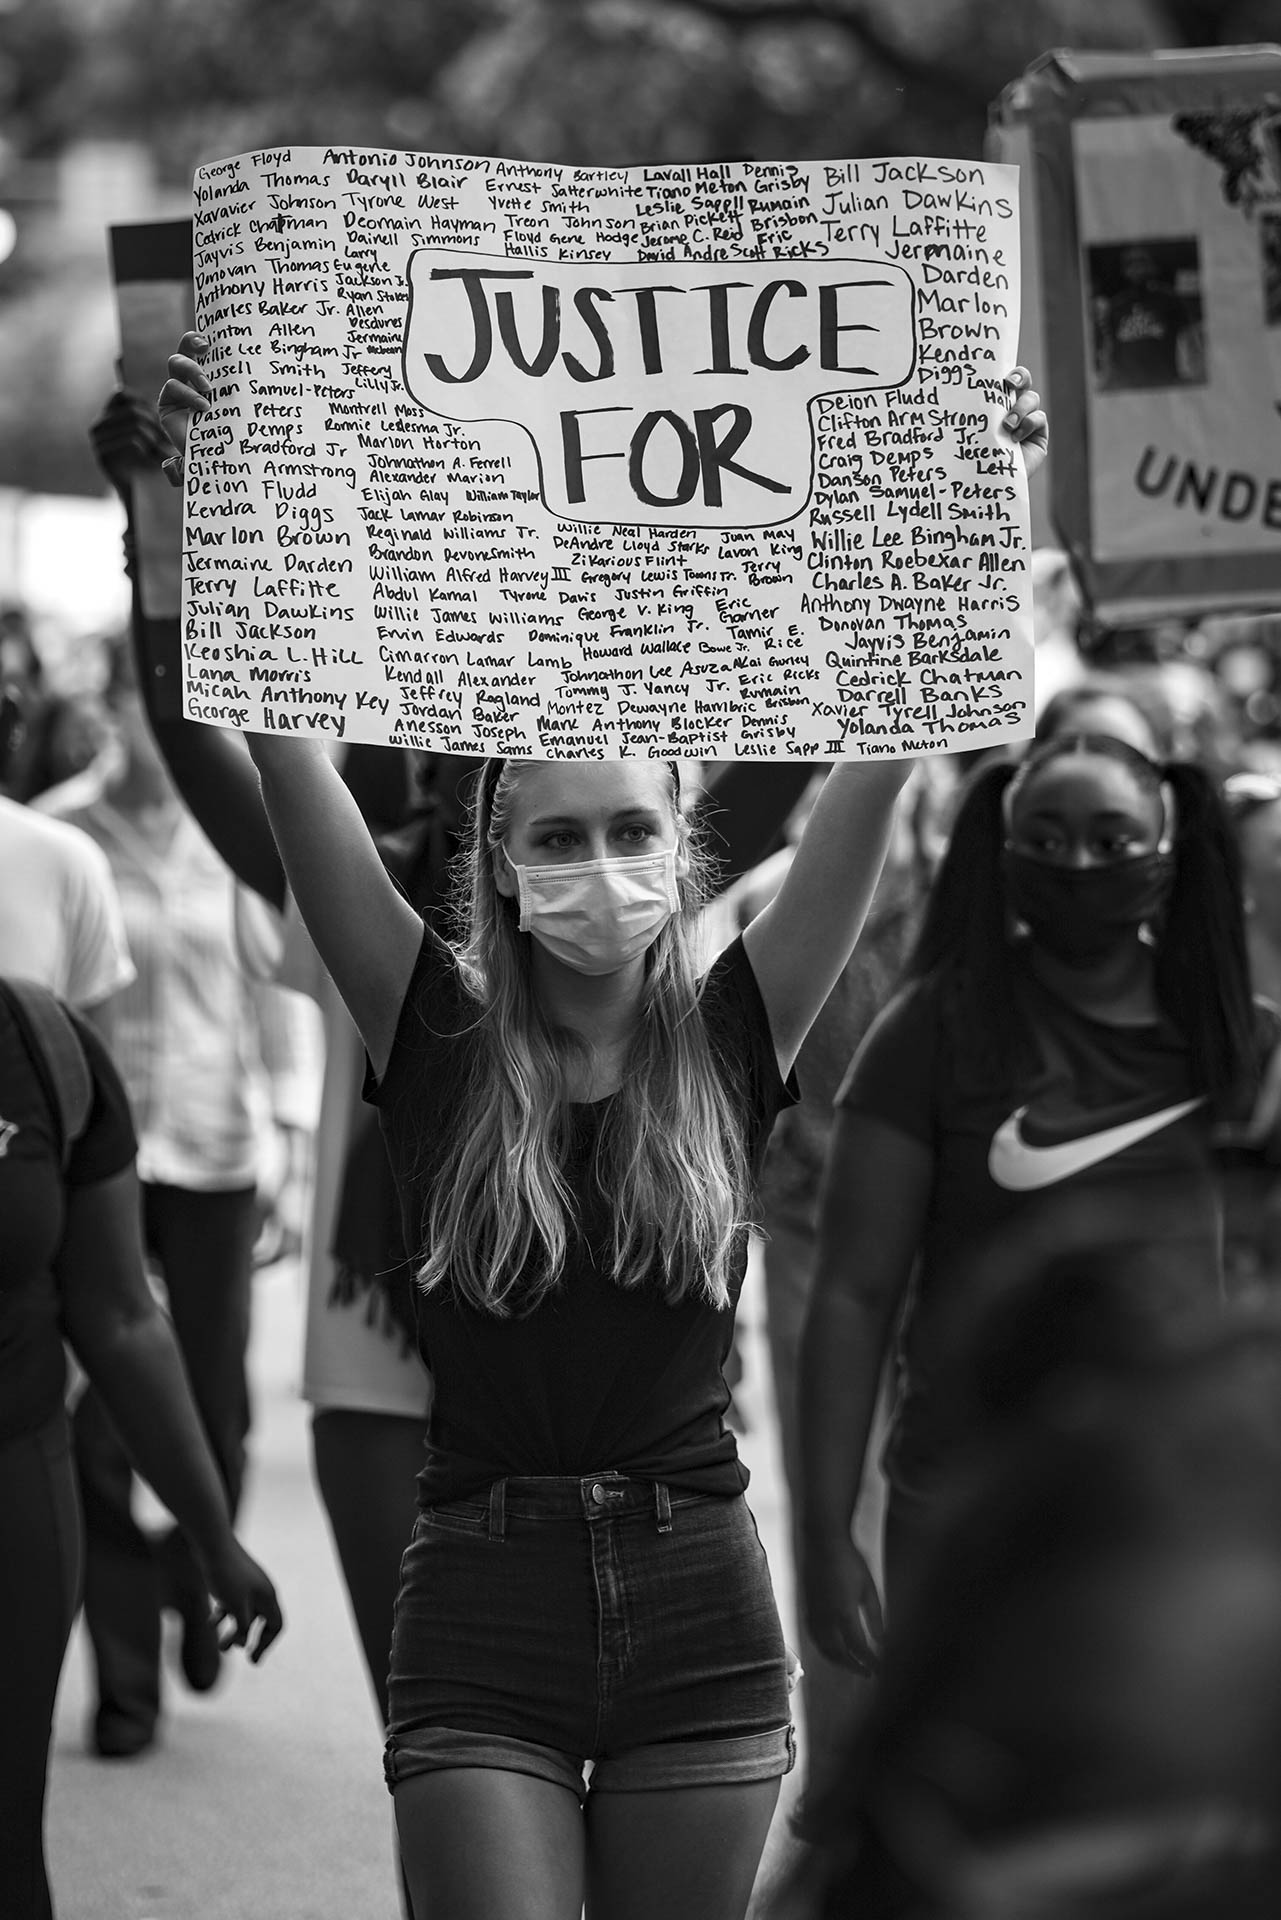 George Floyd
Yolanda Thomas
Xavavier Johnson
Cedrick Chatman
Jayvis Benjamin
Donovan Thomas
Anthony Harris
Charles Baker Jr.
Clinton Allen
Willie Lee Bingham Jr
Russell Smith
Dylan Samuel-Peters
Dason Peters
Craig Demps
Fred Bradford Jr
Clifton Armstrong
Deion Fludd
Kendra Diggs
Marlon Brown
Jermaine Darden
Terry Laffitte
Julian Dawkins
Bill Jackson
Keoshia L. Hill
Lana Morris
Micah Anthony Key
George Harvey
Antonio Johnson
Daryll Blair
Tyrone West
Deomain Hayman
Dainell Simmons
Larry
Eugene
Jackson Jr.
Ryan Stokes
Allen
Desdunes
Jermaine
McBean
Jeffery
Lilly Jr.
Montrell Moss
Ronnie Ledesma Jr.
Marlon Horton
Johnathon A. Ferrell
Alexander Marion
Elijah Glay William Taylor
Jack Lamar Robinson
Reginald Williams Jr.
Brandon Devonesmith
William Alfred Harvey III
Abdul Kamal
Willie James Williams
Ervin Edwards
Cimarron Lamar Lamb
Kendall Alexander
Jeffrey Ragland
Jordan Baker
Anesson Joseph
Willie James Sams
Anthony Bartley
Ernest Satterwhite
Yvette Smith
Treon Johnson
Floyd Gene Hodge
Hallis Kinsey
Lavall Hall Dennis
Tiano Meton Grigsby
Leslie Sapp II Rumain
Brian Pickett Brisbon
Jerome C. Reid Eric
David Andre Scott Ricks
JUSTICE
FOR
Willie Neal Harden
Juan May
DeAndre Lloyd Starks
Lavon King
Zikarious Flint
Gregory Lewis Towns Jr.
Terry
Brown
Tyrone Davis
Justin Griffin
George V. King
Eric
Garner
Dominique Franklin Jr.
Tamir E.
Rice
Howard Wallace Bowe Jr.
Johnathon Lee Asuza
Akai Gurley
Tommy J. Yancy Jr.
Eric Ricks
Montez Dewayne Hambric
Rumain
Brisbon
Mark Anthony Blocker
Dennis
Grisby
Emanuel Jean-Baptist
Charles K. Goodwin
Leslie Sapp III
Tiano Meton
Bill Jackson
Julian Dawkins
Terry Laffitte
Jermaine
Darden
Marlon
Brown
Kendra
Diggs
Lavall
Hall
Deion Fludd
Clifton ArmStrong
Fred Bradford Jr.
Craig Demps
Jeremy
Lett
Danson Peters
Dylan Samuel-Peters
Russell Lydell Smith
Willie Lee Bingham Jr.
Clinton Roebexar Allen
Charles A. Baker Jr.
Anthony Dwayne Harris
Donovan Thomas
Jayvis Benjamin
Quintine Barksdale
Cedrick Chatman
Darrell Banks
Xavier Tyrell Johnson
Yolanda Thomas
UNDE